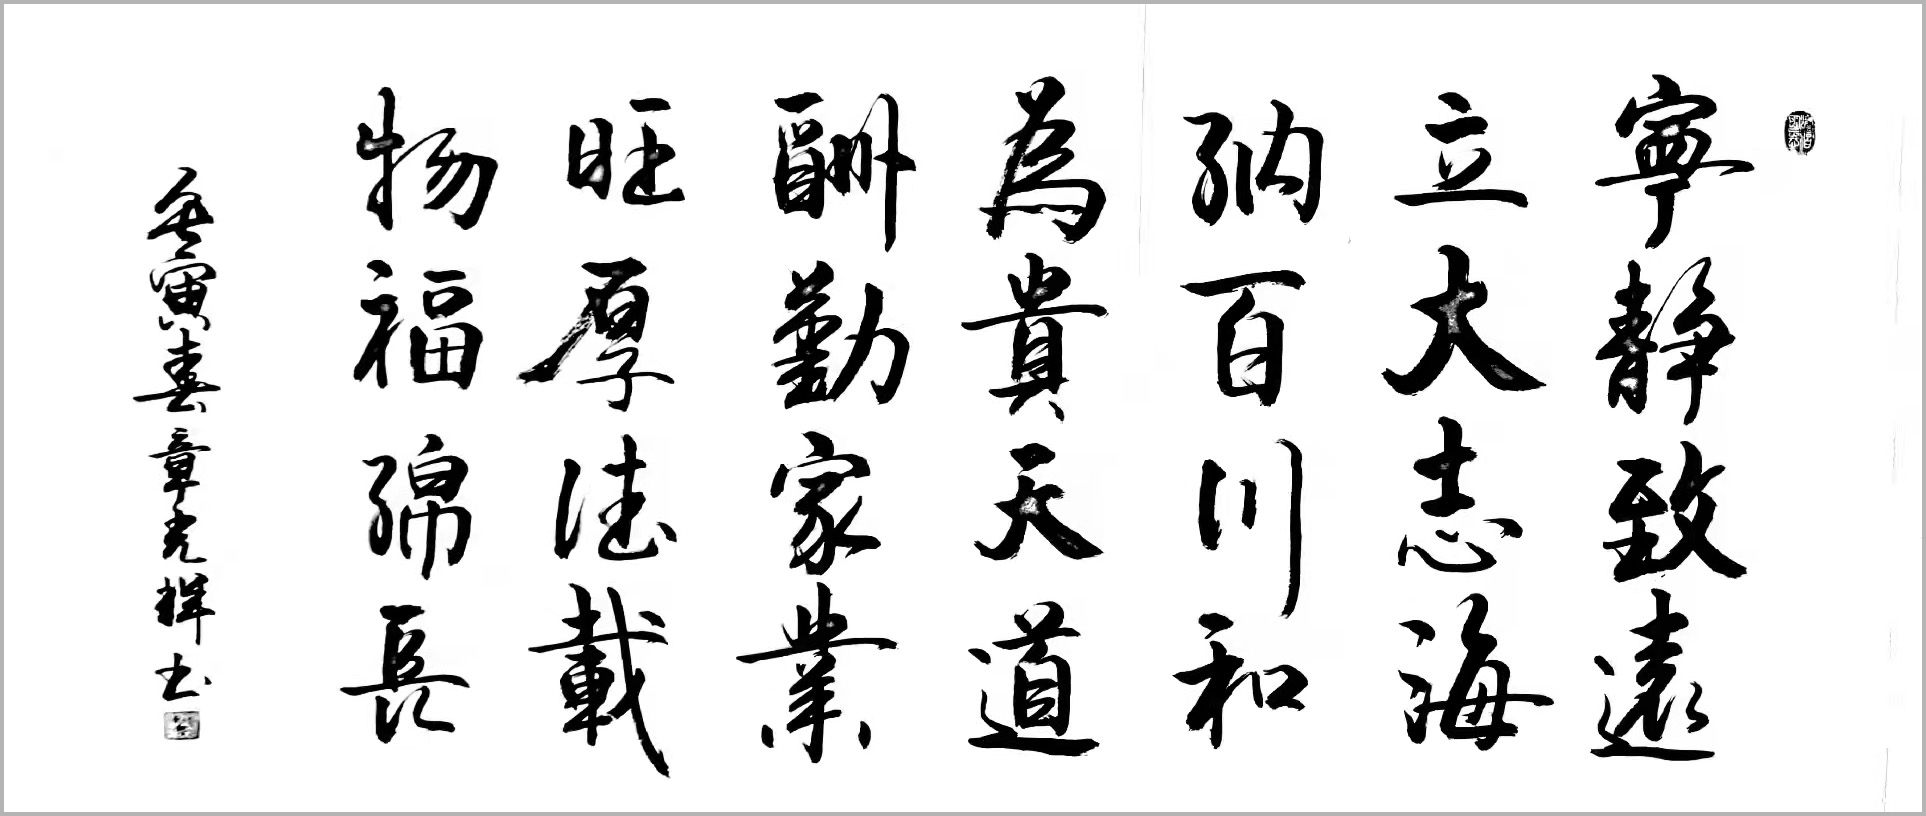 寧靜致遠
立大志海
納百川和
為貴天道
酬勤家業
旺厚德載
物福綿長
寅春章光輝书